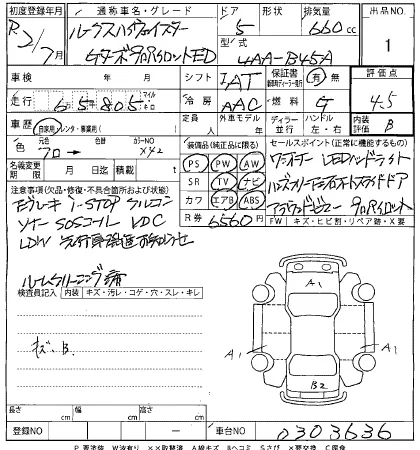 初度登録年月 通称車名・グレード ドア 形状 排気量 出品No.
R2/7月 ルークスハイウェイスター 5 660cc 1
Gターボプロパイロット ED 型式 4AA-B45A
車検 年 月 シフト IAT 保証書 有・無 評価点
走行 65805 マイル キロ 冷房 AAC 燃料 G 4.5
車歴 自家用・レンタ・事業用( ) 定員 人 外車モデル 年 ディーラー 並行 ハンドル 左・右 内装評価 B
色 元色 クロ→ 色替 カラーNo. X42 装備品(純正品に限る) セールスポイント(正常に機能するもの)
PS PW AW ワンオーナー LEDヘッドライト
名義変更期限 月 日迄 積載 t SR TV ナビ ハンズフリー
注意事項(欠品・修復・不具合箇所及び状態) カワ エアB ABS アラウンドビュー プロパイロット
エマブレーキ i-STOP クルコン R券 6560円 FW キズ・ヒビ割・リペア跡・X要
ソナー SOSコール VDC
LDW 先行車発進お知らせ
ルームクリーニング済
検査員記入 内装 キズ・汚レ・コゲ・穴・スレ・キレ
A1
キズ.B.
A1 A1
B2
長さ cm 幅 cm 高さ cm
登録NO ー 車台NO 0303636
P要塗装 W波有り ××取替済 A線キズ Bヘコミ Sさび ×要交換 C腐食